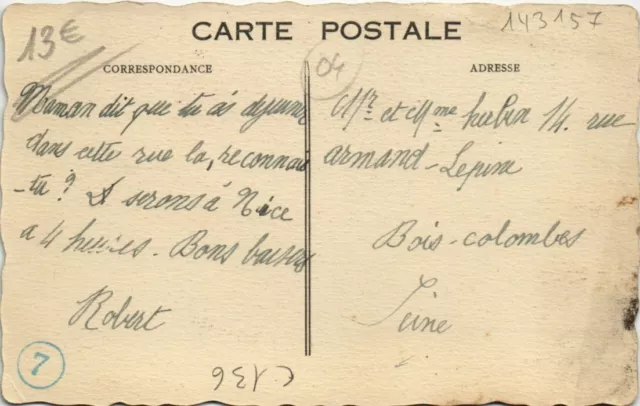 CARTE POSTALE
143157
13€
04
CORRESPONDANCE
ADRESSE
Maman dit que tu as dejeuné
dans cette rue la, reconnais
-tu ? serons à Nice
a 4 heures. Bons baisers
Robert
Mr et Mme hubin 14. rue
armand-Lepine
Bois-colombes
Seine
7
C136